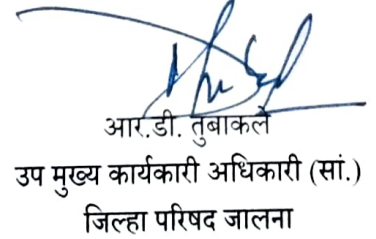 आर.डी. तुबाकले
उप मुख्य कार्यकारी अधिकारी (सां.)
जिल्हा परिषद जालना